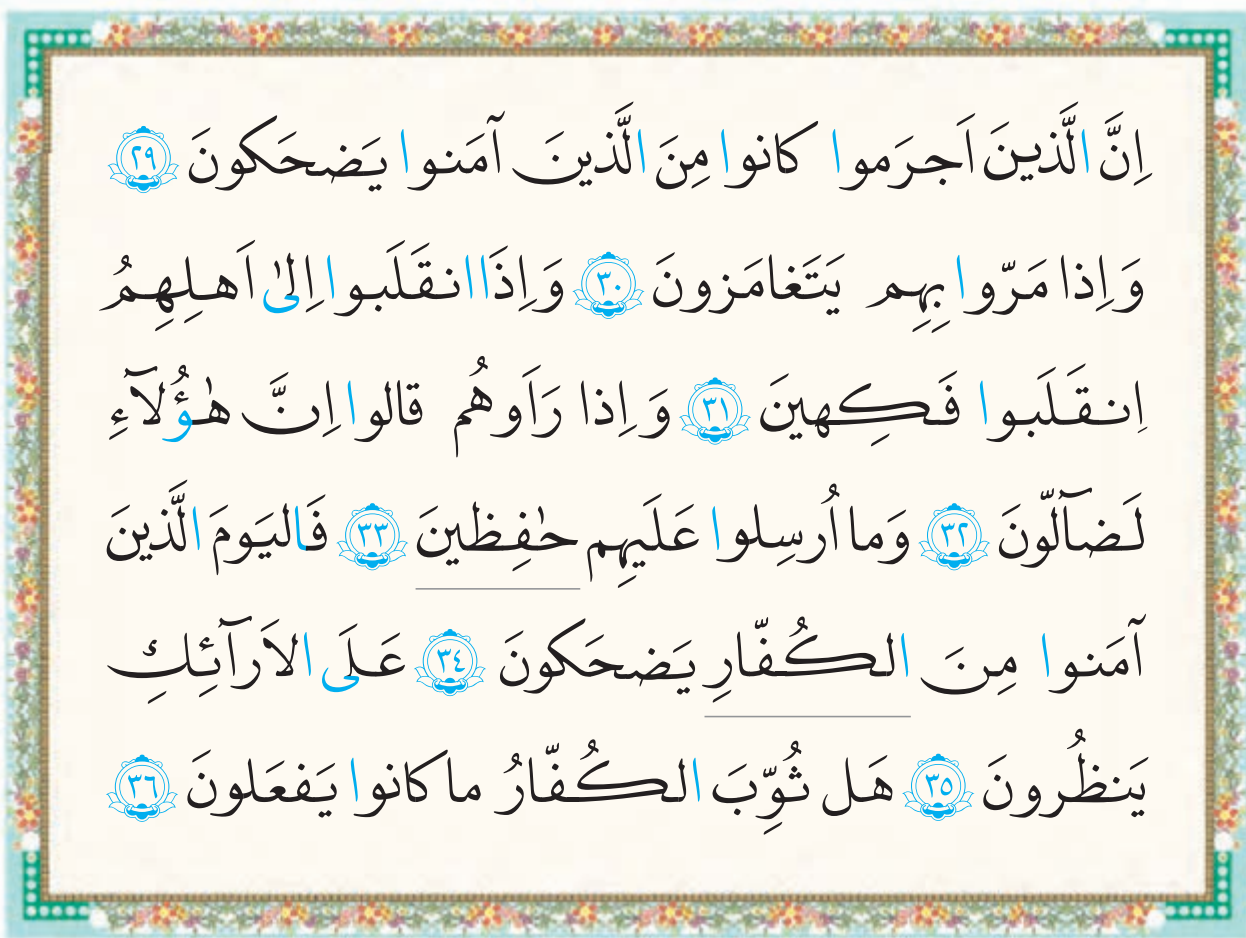 اِنَّ الَّذینَ اَجرَموا کانوا مِنَ الَّذینَ آمَنوا یَضحَکونَ ٢٩
وَ اِذا مَرّوا بِهِم یَتَغامَزونَ ٣٠ وَ اِذَا انقَلَبوا اِلیٰ اَهلِهِمُ
اِنقَلَبوا فَکِهینَ ٣١ وَ اِذا رَاَوهُم قالوا اِنَّ هٰؤُلآءِ
لَضآلّونَ ٣٢ وَما اُرسِلوا عَلَیهِم حٰفِظینَ ٣٣ فَالیَومَ الَّذینَ
آمَنوا مِنَ الکُفّارِ یَضحَکونَ ٣٤ عَلَی الاَرآئِكِ
یَنظُرونَ ٣٥ هَل ثُوِّبَ الکُفّارُ ما کانوا یَفعَلونَ ٣٦